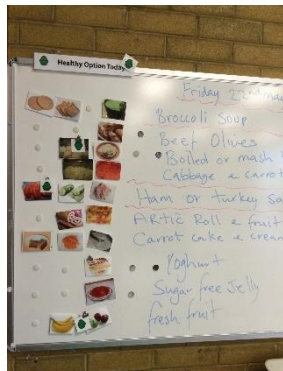 Healthy Option Today
Friday 22nd
Broccoli Soup
Beef Olives
Boiled or mash
Cabbage & carrot
Ham or turkey
ARtic Roll & fruit
Carrot cake & cream
Yoghurt
Sugar free Jelly
fresh fruit